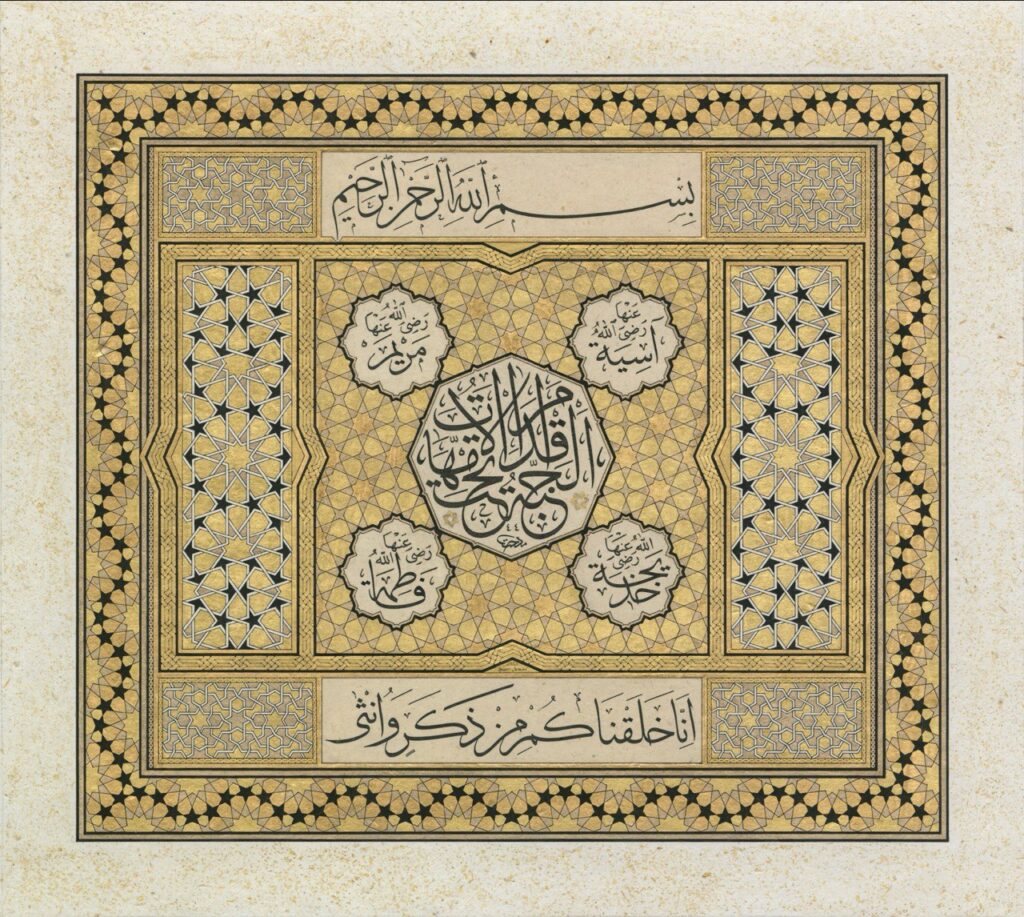 بِسْمِ اللّٰهِ الرَّحْمٰنِ الرَّحِيمِ
آسِيَة رَضِيَ اللّٰهُ عَنْهَا
مَرْيَم رَضِيَ اللّٰهُ عَنْهَا
اَلْجَنَّةُ تَحْتَ اَقْدَامِ الْاُمَّهَاتِ
خَدِيجَة رَضِيَ اللّٰهُ عَنْهَا
فَاطِمَة رَضِيَ اللّٰهُ عَنْهَا
اِنَّا خَلَقْنَاكُمْ مِنْ ذَكَرٍ وَاُنْثٰى